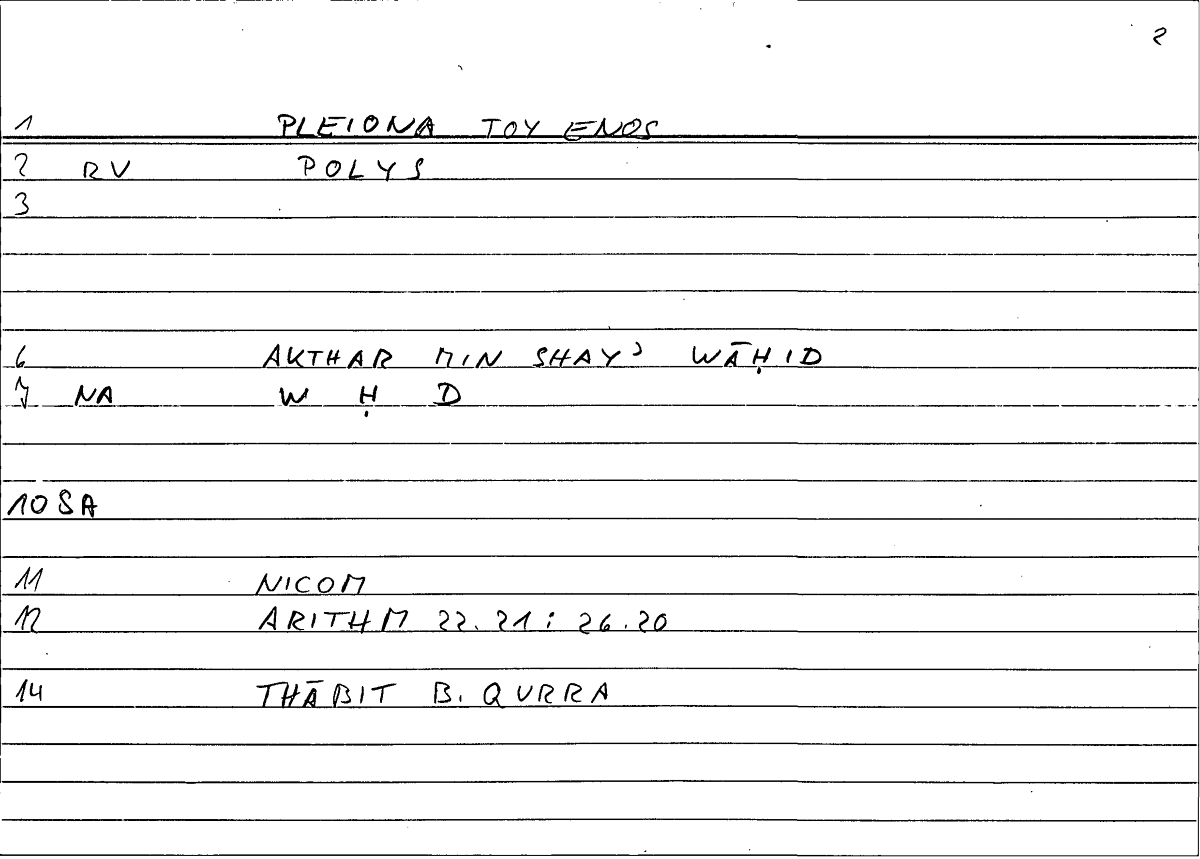 2
1 PLEIONA TOY ENOS
2 RV POLYS
3
6 AKTHAR MIN SHAYʾ WĀḤID
7 NA W Ḥ D
10 SA
11 NICOM
12 ARITHM 22.21 : 26.20
14 THĀBIT B. QURRA